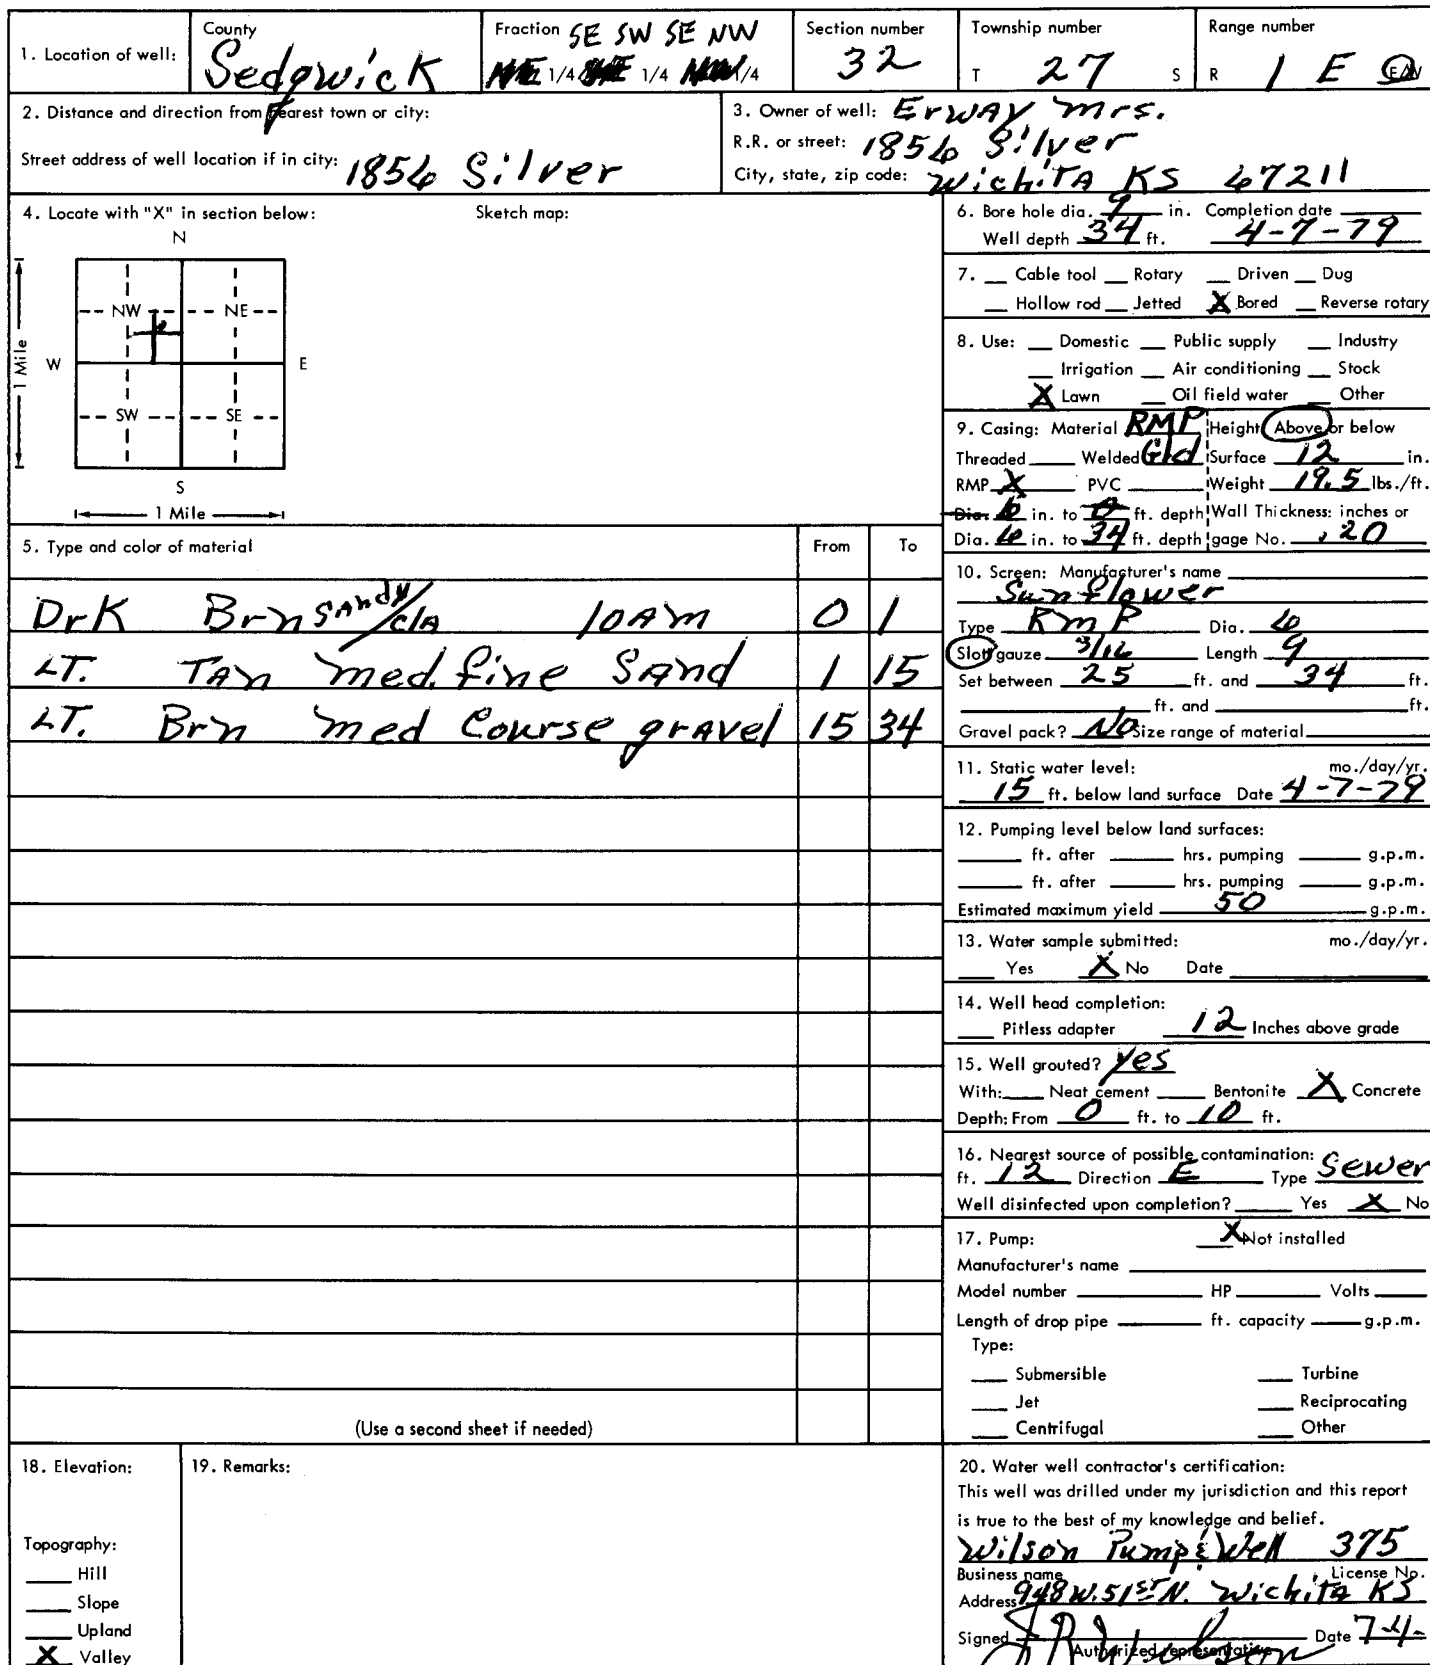 1. Location of well:
County
Sedgwick
Fraction SE SW SE NW
1/4 1/4 1/4
Section number
32
Township number
T 27 S
Range number
R 1 E E/W
2. Distance and direction from nearest town or city:
Street address of well location if in city: 1856 Silver
3. Owner of well: Erway Mrs.
R.R. or street: 1856 Silver
City, state, zip code: Wichita KS 67211
4. Locate with "X" in section below:
Sketch map:
N
NW NE
W E
SW SE
S
1 Mile
1 Mile
5. Type and color of material From To
Drk Brn Sandy/cla loam 0 1
LT. Tan med. fine Sand 1 15
LT. Brn med Course gravel 15 34
(Use a second sheet if needed)
6. Bore hole dia. 9 in. Completion date
Well depth 34 ft. 4-7-79
7. Cable tool Rotary Driven Dug
Hollow rod Jetted X Bored Reverse rotary
8. Use: Domestic Public supply Industry
Irrigation Air conditioning Stock
X Lawn Oil field water Other
9. Casing: Material RMP Height: Above or below
Threaded Welded Gld Surface 12 in.
RMP X PVC Weight 19.5 lbs./ft.
Dia. 6 in. to 0 ft. depth Wall Thickness: inches or
Dia. 6 in. to 34 ft. depth gage No. .20
10. Screen: Manufacturer's name
Sunflower
Type RMP Dia. 6
Slot gauze 3/16 Length 9
Set between 25 ft. and 34 ft.
ft. and ft.
Gravel pack? No Size range of material
11. Static water level: mo./day/yr.
15 ft. below land surface Date 4-7-79
12. Pumping level below land surfaces:
ft. after hrs. pumping g.p.m.
ft. after hrs. pumping g.p.m.
Estimated maximum yield 50 g.p.m.
13. Water sample submitted: mo./day/yr.
Yes X No Date
14. Well head completion:
Pitless adapter 12 Inches above grade
15. Well grouted? Yes
With: Neat cement Bentonite X Concrete
Depth: From 0 ft. to 10 ft.
16. Nearest source of possible contamination:
ft. 12 Direction E Type Sewer
Well disinfected upon completion? Yes X No
17. Pump: X Not installed
Manufacturer's name
Model number HP Volts
Length of drop pipe ft. capacity g.p.m.
Type:
Submersible Turbine
Jet Reciprocating
Centrifugal Other
18. Elevation:
Topography:
Hill
Slope
Upland
X Valley
19. Remarks:
20. Water well contractor's certification:
This well was drilled under my jurisdiction and this report
is true to the best of my knowledge and belief.
Wilson Pump & Well 375
Business name License No.
Address 948 W. 51st N. Wichita KS
Signed JR Wilson Date 7-4-
Authorized representative